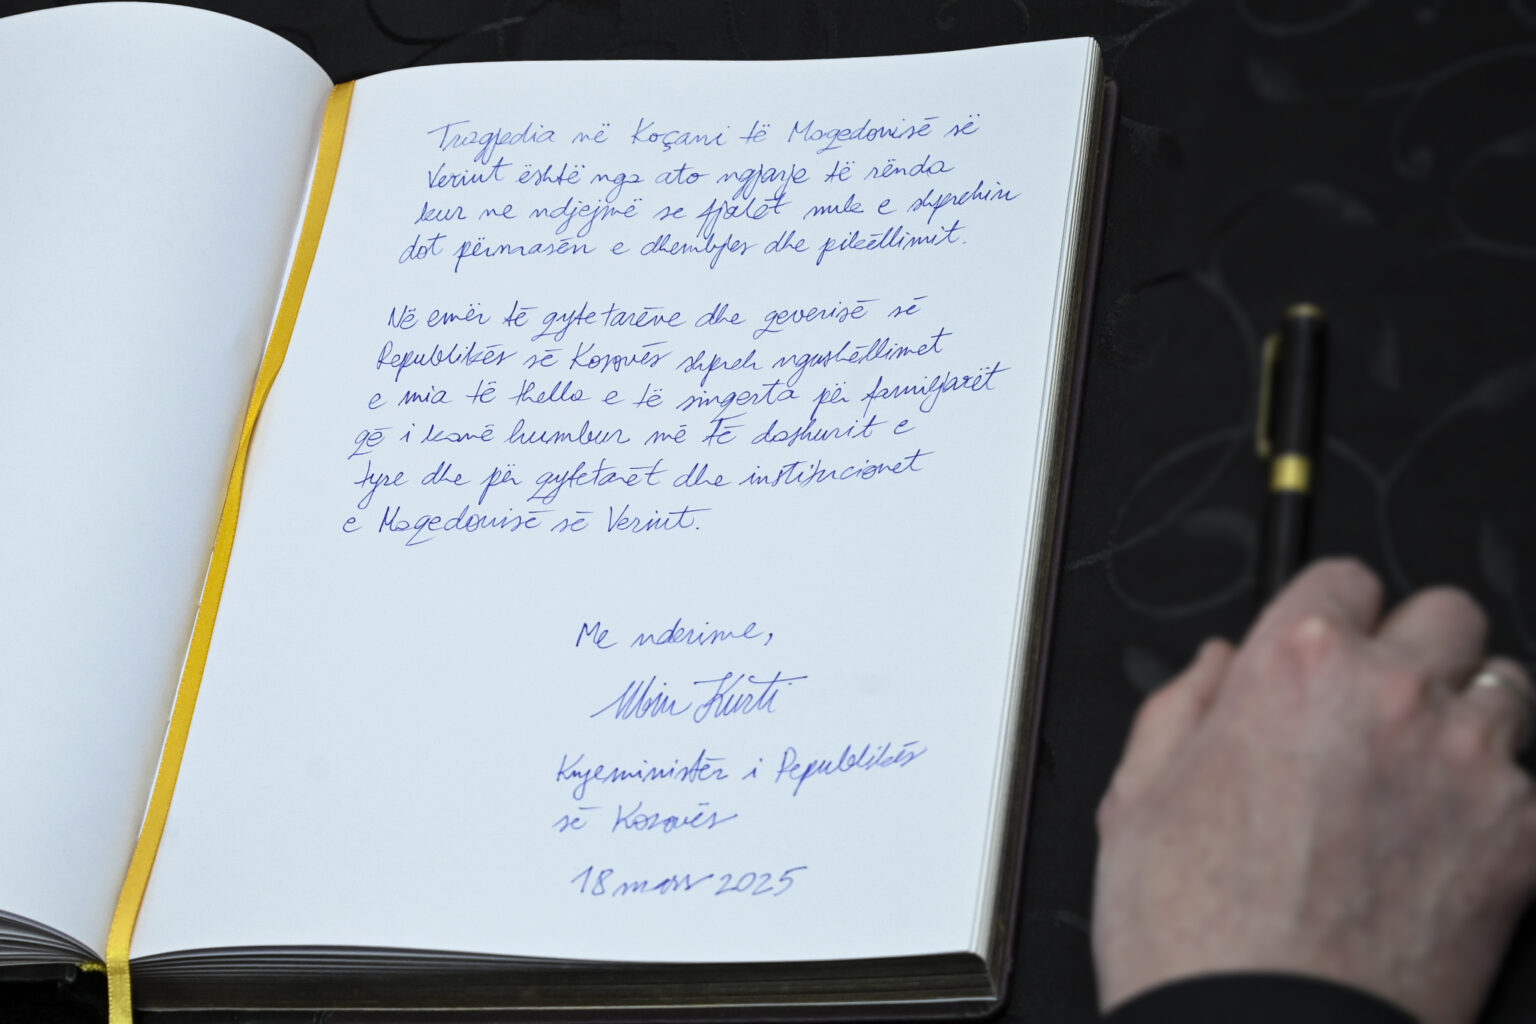 Tragjedia në Koçani të Maqedonisë së
Veriut është nga ato ngjarje të rënda
kur ne ndjejmë se fjalët nuk e shprehin
dot përmasën e dhembjes dhe pikëllimit.
Në emër të qytetarëve dhe qeverisë së
Republikës së Kosovës shpreh ngushëllimet
e mia të thella e të singerta për familjarët
që i kanë humbur më të dashurit e
tyre dhe për qytetarët dhe institucionet
e Maqedonisë së Veriut.
Me nderime,
Albin Kurti
Kryeministër i Republikës
së Kosovës
18 mars 2025